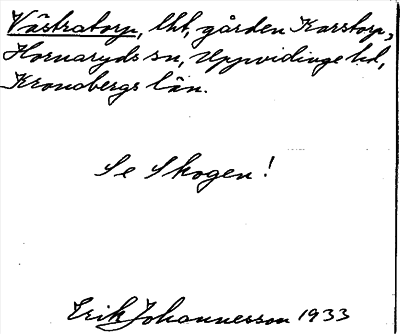 Västratorp, lht, gården Karstorp,
Hornaryds sn, Uppvidinge hd,
Kronobergs län.
Se Skogen!
Erik Johannesson 1933